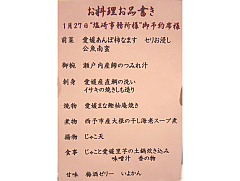 お料理お品書き
1月27日"塩崎事務所様"御予約席様
前菜 愛媛あんぽ柿なます セリお浸し
公魚南蛮
御椀 瀬戸内産鱧のつみれ汁
刺身 愛媛産直鯛の洗い
イサキの焼きしも造り
焼物 愛媛まな鰹柚庵焼き
煮物 西予市産大根の干し海老スープ煮
揚物 じゃこ天
食事 じゃこと愛媛里芋の土鍋炊き込み
味噌汁 香の物
甘味 梅酒ゼリー いよかん